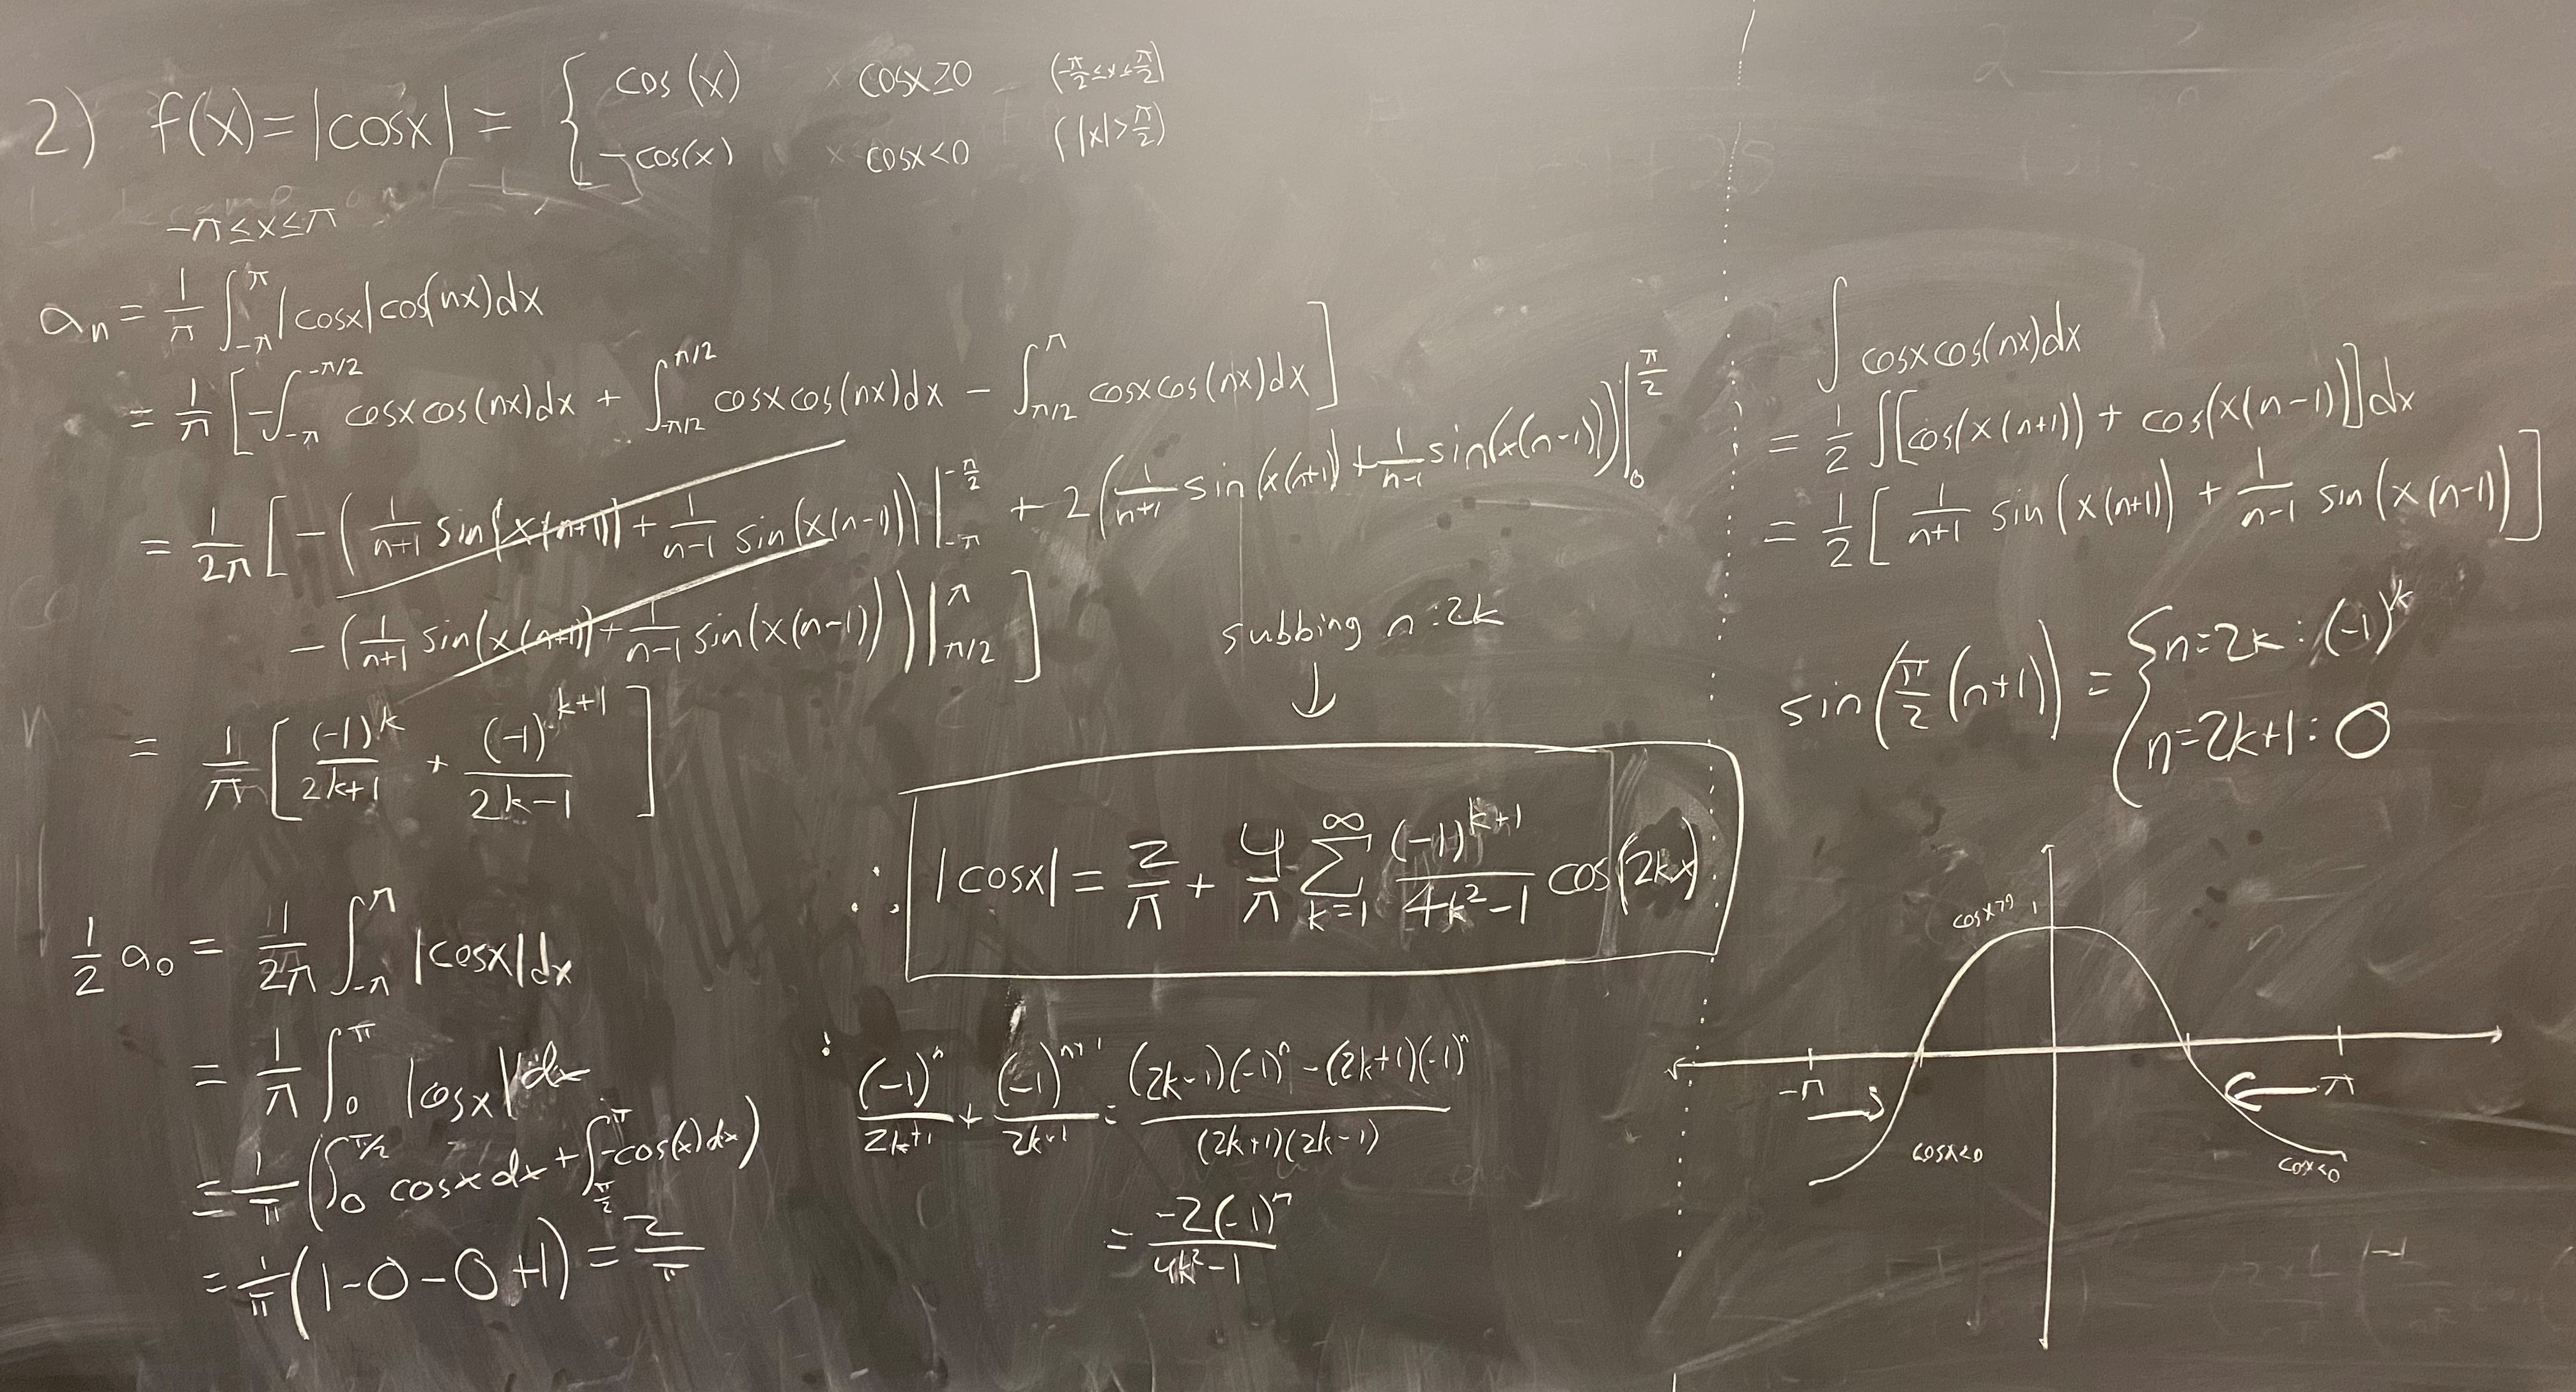 2) f(x) = |cosx| = { cos(x) cosx ≥ 0 (-π/2 ≤ x ≤ π/2)
-cos(x) cosx < 0 (|x| > π/2)
-π ≤ x ≤ π
aₙ = 1/π ∫_{-π}^{π} |cosx| cos(nx)dx
= 1/π [ -∫_{-π}^{-π/2} cosx cos(nx)dx + ∫_{-π/2}^{π/2} cosx cos(nx)dx - ∫_{π/2}^{π} cosx cos(nx)dx ]
= 1/2π [ -( 1/(n+1) sin(x(n+1)) + 1/(n-1) sin(x(n-1)) ) |_{-π}^{-π/2} + 2( 1/(n+1) sin(x(n+1)) + 1/(n-1) sin(x(n-1)) ) |_{0}^{π/2}
- ( 1/(n+1) sin(x(n+1)) + 1/(n-1) sin(x(n-1)) ) |_{π/2}^{π} ]
= 1/π [ (-1)^k/(2k+1) + (-1)^{k+1}/(2k-1) ]
1/2 a₀ = 1/2π ∫_{-π}^{π} |cosx|dx
= 1/π ∫_{0}^{π} |cosx|dx
= 1/π ( ∫_{0}^{π/2} cosx dx + ∫_{π/2}^{π} -cos(x)dx )
= 1/π (1-0-0+1) = 2/π
subbing n:2k
↓
∴ |cosx| = 2/π + 4/π ∑_{k=1}^{∞} (-1)^{k+1}/(4k²-1) cos(2kx)
(-1)^n/(2k+1) + (-1)^{n+1}/(2k-1) = ((2k-1)(-1)^n - (2k+1)(-1)^n)/((2k+1)(2k-1))
= -2(-1)^n/(4k²-1)
∫ cosx cos(nx)dx
= 1/2 ∫[cos(x(n+1)) + cos(x(n-1))]dx
= 1/2 [ 1/(n+1) sin(x(n+1)) + 1/(n-1) sin(x(n-1)) ]
sin(π/2 (n+1)) = { n=2k : (-1)^k
n=2k+1 : 0
cosx>0 1
-π π
cosx<0 cosx<0